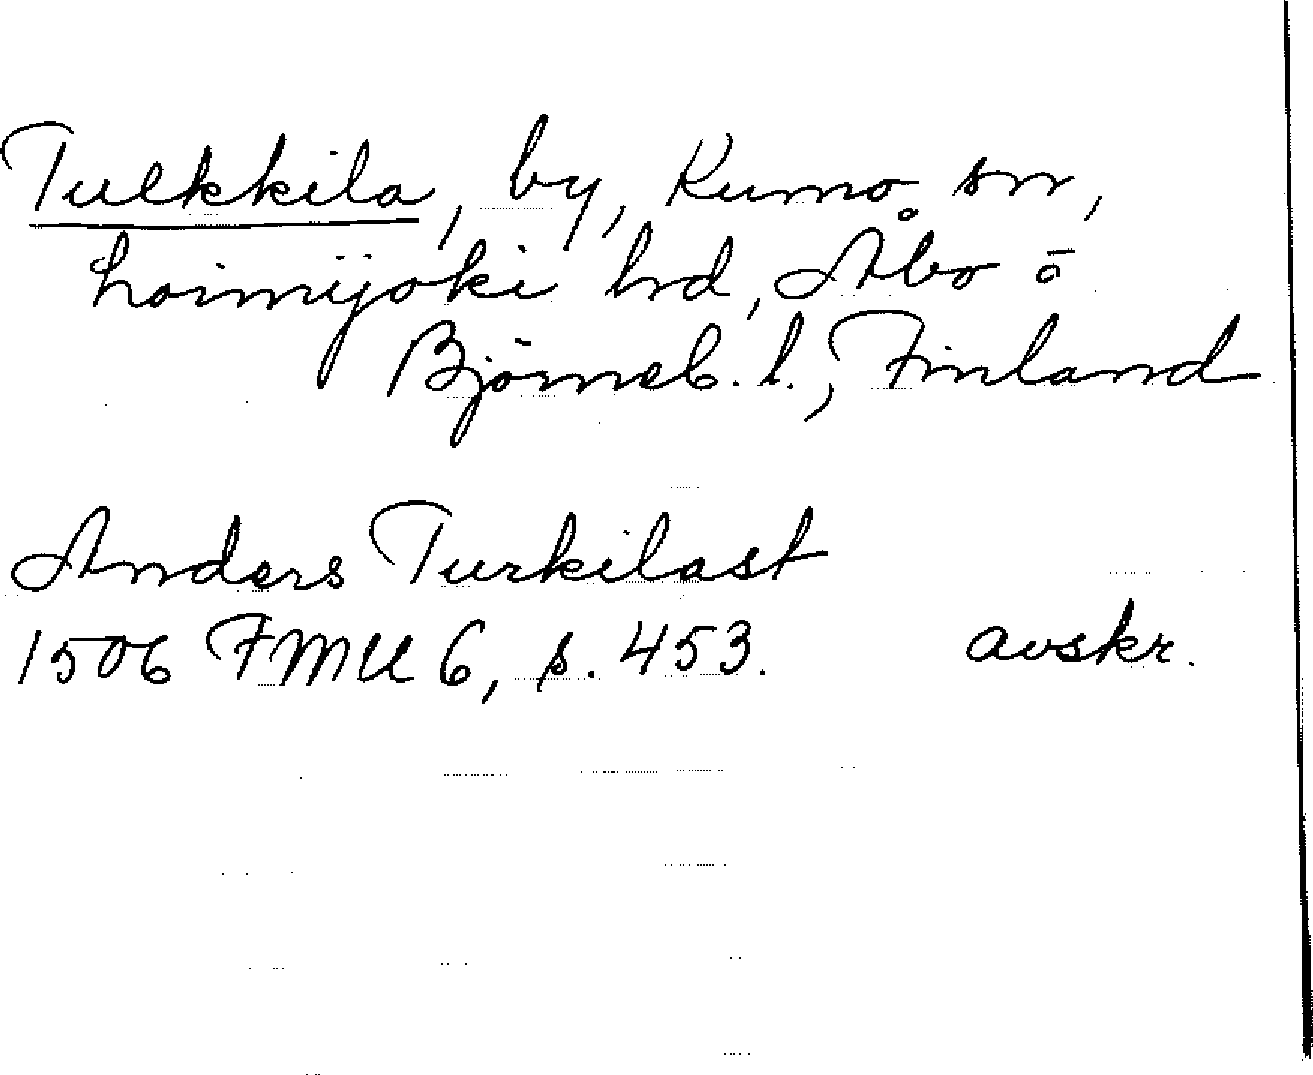 Tulkkila, by, Kumo sn,
Loimijoki hd, Åbo o
Björneb. l., Finland
Anders Turkilast
1506 FMU 6, s. 453. avskr.